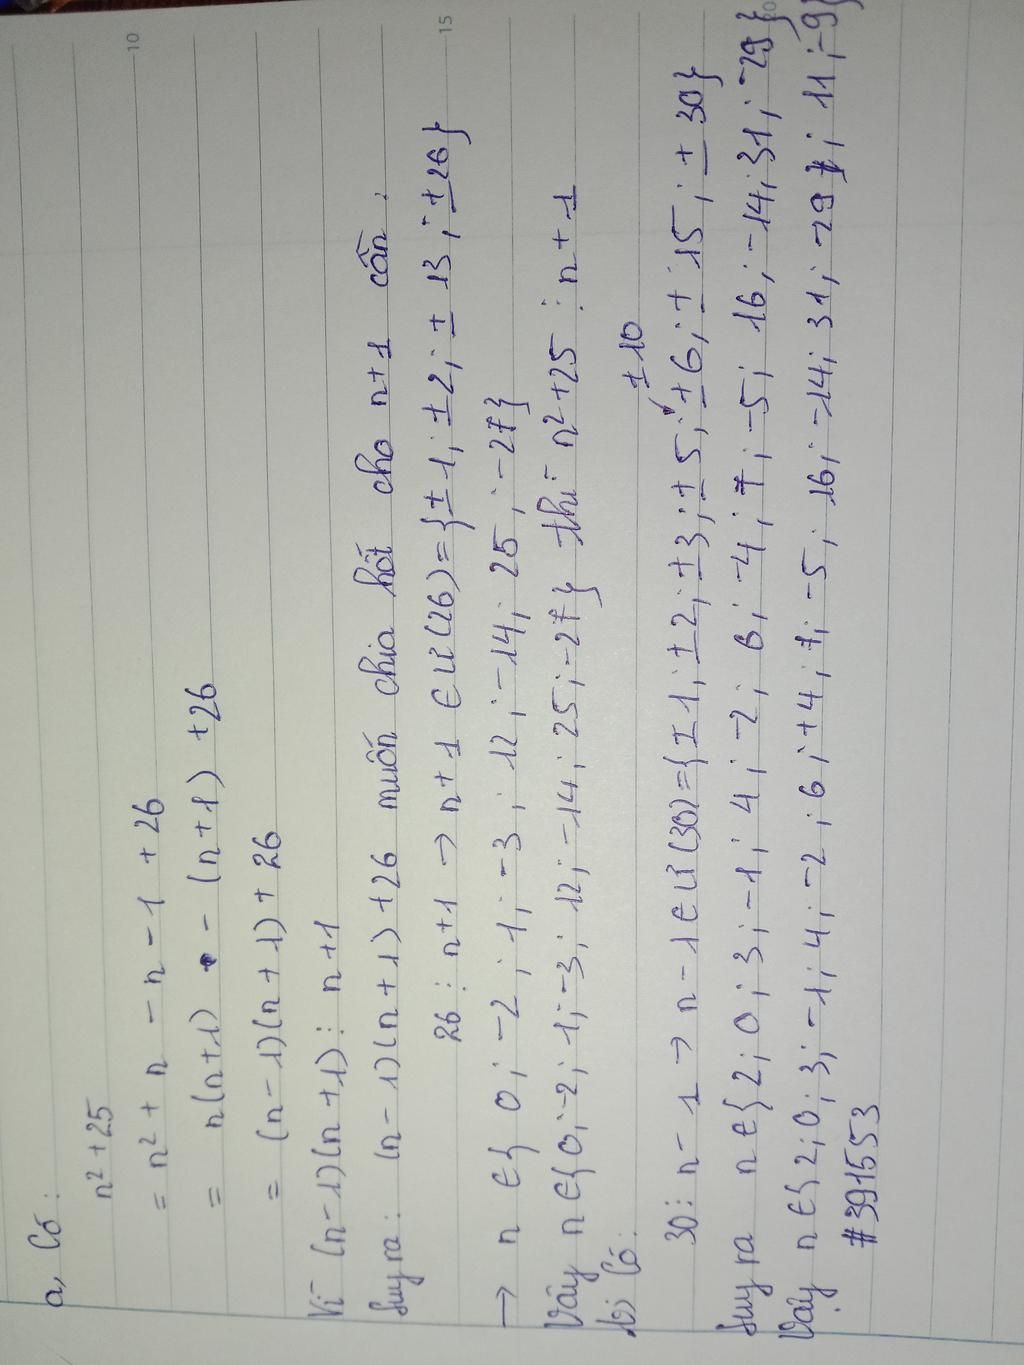 a, Có :
n² + 25
= n² + n - n - 1 + 26
= n(n+1) - (n+1) + 26
= (n-1)(n+1) + 26
Vì (n-1)(n+1) ⋮ n+1
Suy ra: (n-1)(n+1) + 26 muốn chia hết cho n+1 cần:
26 ⋮ n+1 → n+1 ∈ Ư(26) = {±1; ±2; ±13; ±26}
→ n ∈ {0; -2; 1; -3; 12; -14; 25; -27}
Vậy n ∈ {0; -2; 1; -3; 12; -14; 25; -27} thì n²+25 ⋮ n+1
b, Có:
±10
30 ⋮ n-1 → n-1 ∈ Ư(30) = {±1; ±2; ±3; ±5; ±6; ±15; ±30}
Suy ra n ∈ {2; 0; 3; -1; 4; -2; 6; -4; 7; -5; 16; -14; 31; -29}
Vậy n ∈ {2; 0; 3; -1; 4; -2; 6; +4; 7; -5; 16; -14; 31; -29; 11; -9}
#391553
10
15
20